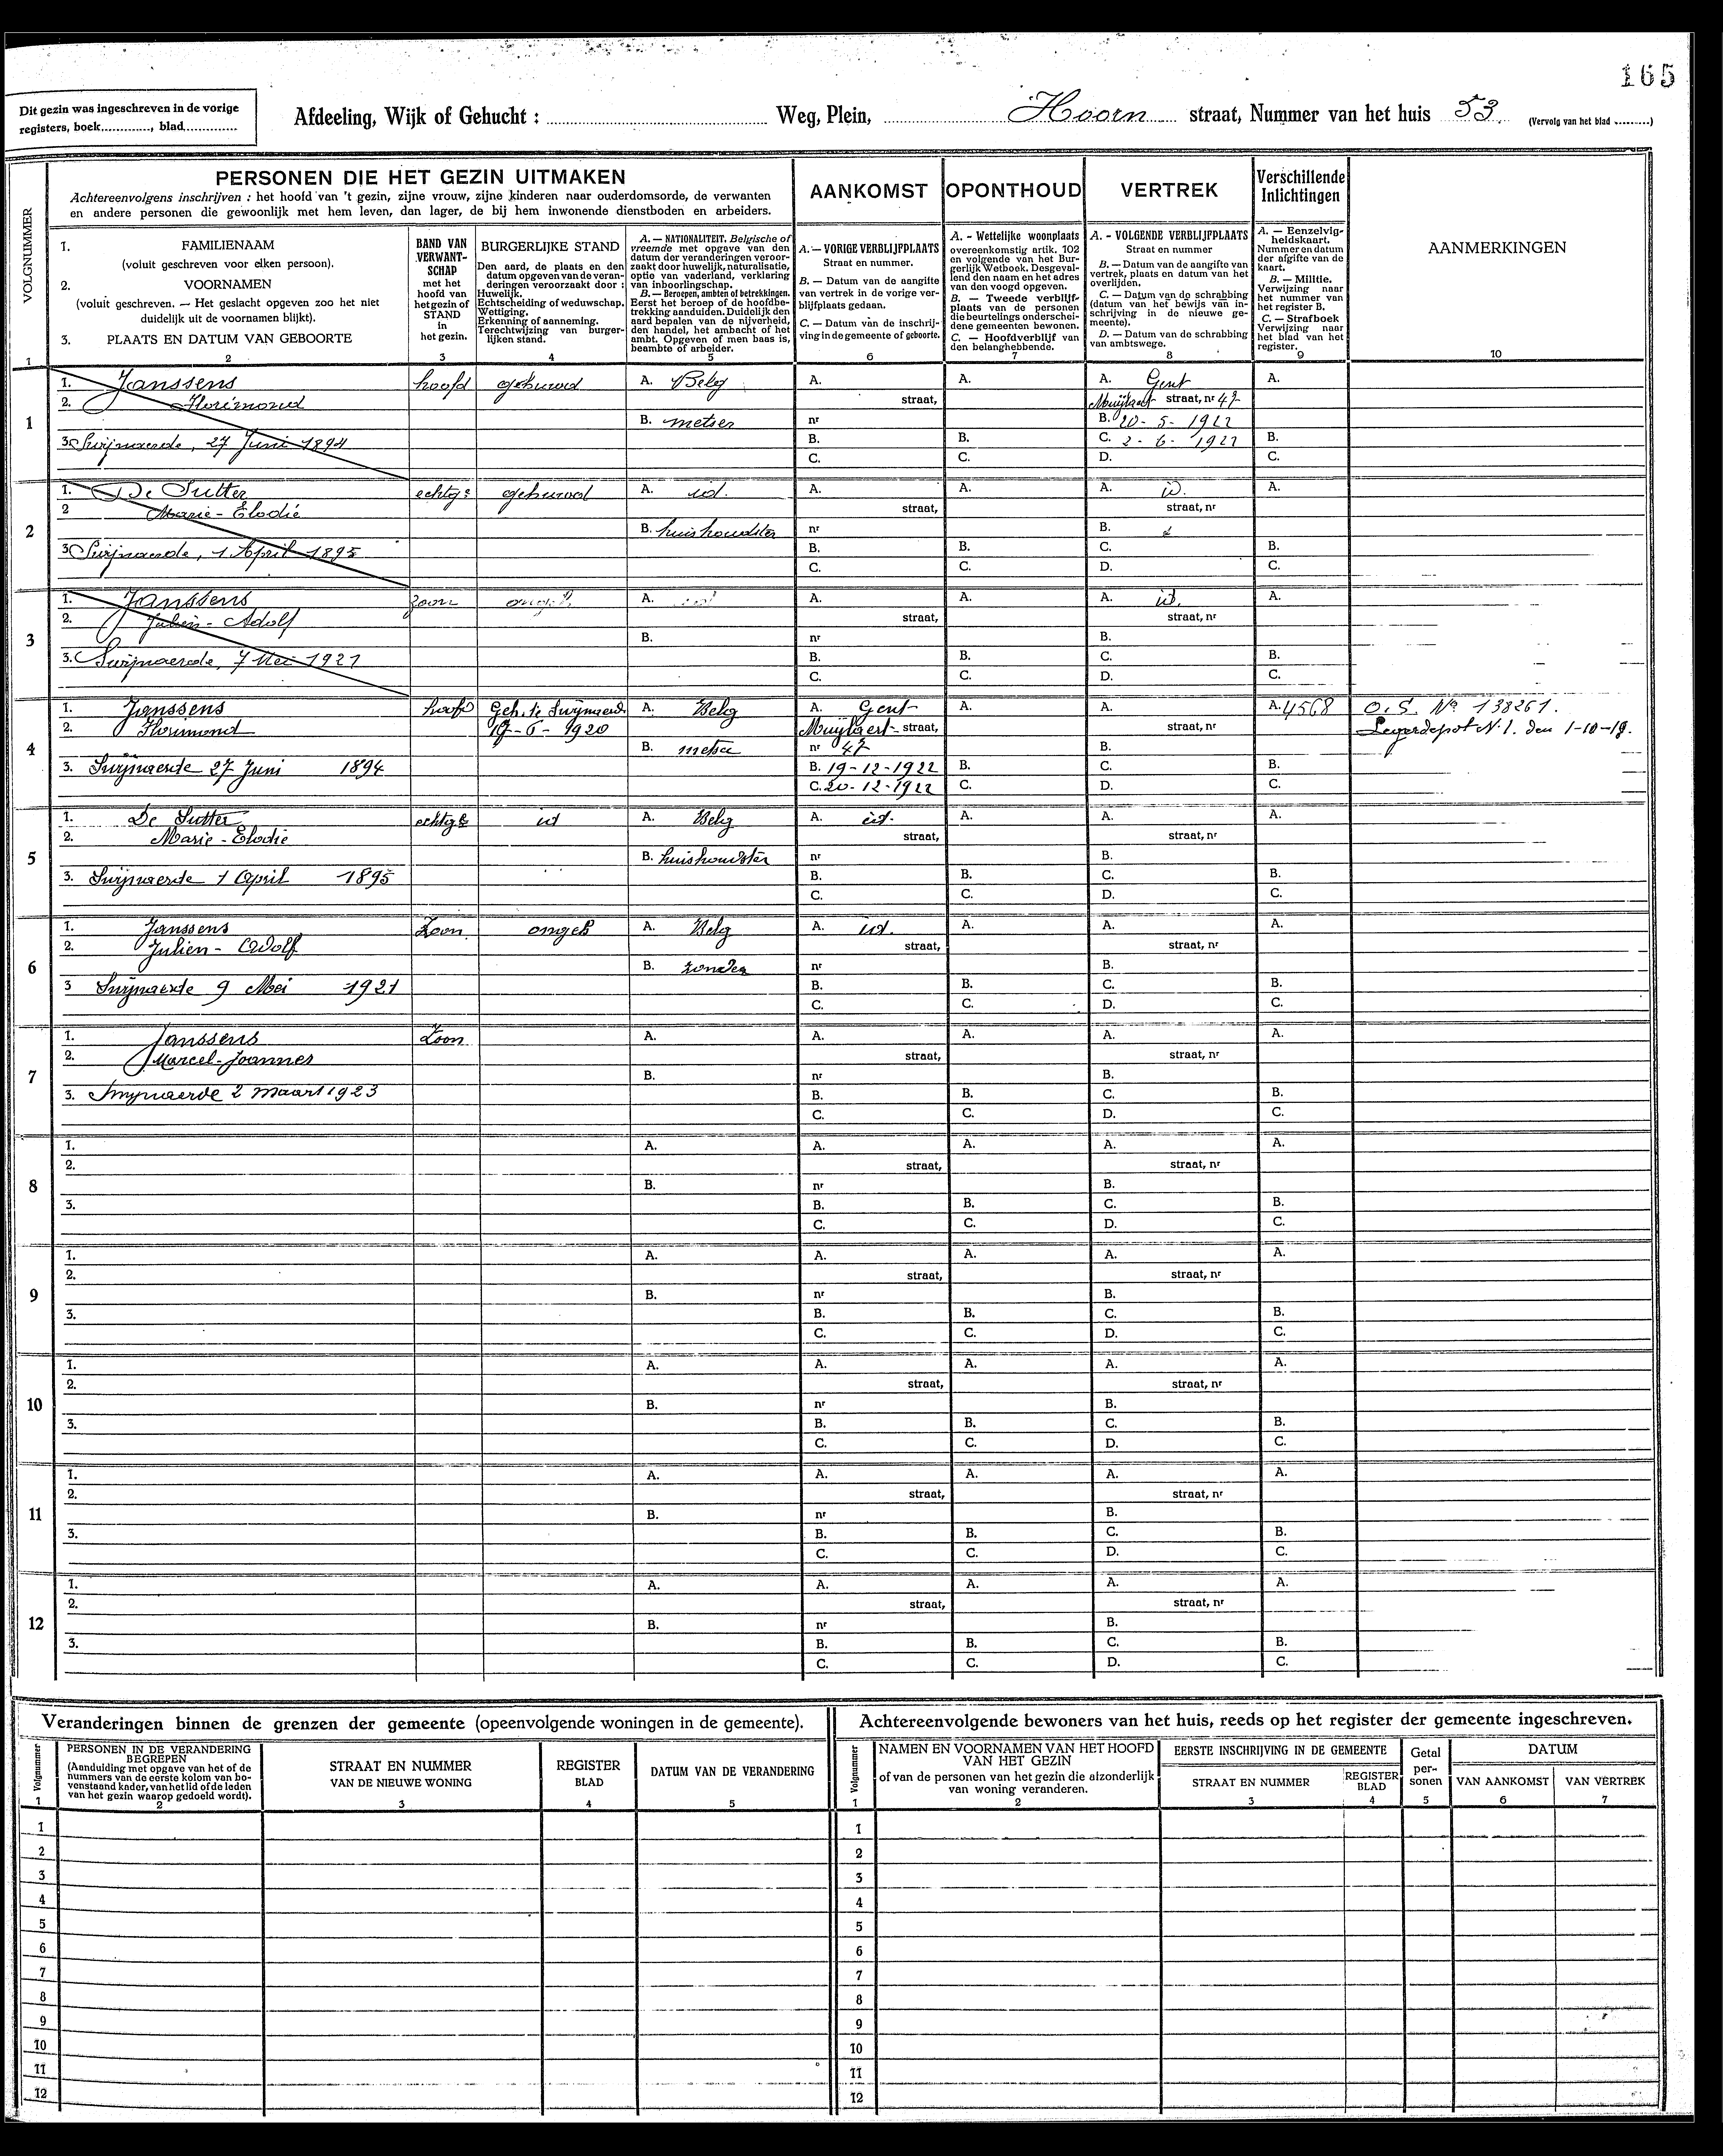 165
Dit gezin was ingeschreven in de vorige
registers, boek............., blad..............
Afdeeling, Wijk of Gehucht : ........ Weg, Plein, ........ Hoorn ........ straat, Nummer van het huis 53. (Vervolg van het blad .........)
VOLGNUMMER
1
PERSONEN DIE HET GEZIN UITMAKEN
Achtereenvolgens inschrijven : het hoofd van 't gezin, zijne vrouw, zijne kinderen naar ouderdomsorde, de verwanten
en andere personen die gewoonlijk met hem leven, dan lager, de bij hem inwonende dienstboden en arbeiders.
1. FAMILIENAAM
(voluit geschreven voor elken persoon).
2. VOORNAMEN
(voluit geschreven. — Het geslacht opgeven zoo het niet
duidelijk uit de voornamen blijkt).
3. PLAATS EN DATUM VAN GEBOORTE
2
BAND VAN
VERWANT-
SCHAP
met het
hoofd van
het gezin of
STAND
in
het gezin.
3
BURGERLIJKE STAND
Den aard, de plaats en den
datum opgeven van de veran-
deringen veroorzaakt door :
Huwelijk.
Echtscheiding of weduwschap.
Wettiging.
Erkenning of aanneming.
Terechtwijzing van burger-
lijken stand.
4
A. — NATIONALITEIT. Belgische of
vreemde met opgave van den
datum der veranderingen veroor-
zaakt door huwelijk, naturalisatie,
optie van vaderland, verklaring
van inboorlingschap.
B. — Beroepen, ambten of betrekkingen.
Eerst het beroep of de hoofdbe-
trekking aanduiden. Duidelijk den
aard bepalen van de nijverheid,
den handel, het ambacht of het
ambt. Opgeven of men baas is,
beambte of arbeider.
5
AANKOMST
A. — VORIGE VERBLIJFPLAATS
Straat en nummer.
B. — Datum van de aangifte
van vertrek in de vorige ver-
blijfplaats gedaan.
C. — Datum van de inschrij-
ving in de gemeente of geboorte.
6
OPONTHOUD
A. - Wettelijke woonplaats
overeenkomstig artik. 102
en volgende van het Bur-
gerlijk Wetboek. Desgeval-
lend den naam en het adres
van den voogd opgeven.
B. — Tweede verblijf-
plaats van de personen
die beurtelings onderschei-
dene gemeenten bewonen.
C. — Hoofdverblijf van
den belanghebbende.
7
VERTREK
A. - VOLGENDE VERBLIJFPLAATS
Straat en nummer
B. — Datum van de aangifte van
vertrek, plaats en datum van het
overlijden.
C. — Datum van de schrabbing
(datum van het bewijs van in-
schrijving in de nieuwe ge-
meente).
D. — Datum van de schrabbing
van ambtswege.
8
Verschillende
Inlichtingen
A. — Eenzelvig-
heidskaart.
Nummer en datum
der afgifte van de
kaart.
B. — Militie.
Verwijzing naar
het nummer van
het register B.
C. — Strafboek
Verwijzing naar
het blad van het
register.
9
AANMERKINGEN
10
1
1. Janssens hoofd gehuwd A. Belg A. A. A. Gent A.
2. Florimond straat, Muijlaert straat, nr 47
B. metser nr B. 20 - 5 - 1922
3. Swijnaerde, 27 Juni 1894 B. B. C. 2 - 6 - 1922 B.
C. C. D. C.
2
1. De Sutter echtge gehuwd A. id. A. A. A. id. A.
2 Marie - Elodie straat, straat, nr
B. huishoudster nr B.
3 Swijnaerde, 1 April 1895 B. B. C. B.
C. C. D. C.
3
1. Janssens zoon ongeh. A. id A. A. A. id. A.
2. Julien - Adolf straat, straat, nr
B. nr B.
3. Swijnaerde, 7 Mei 1921 B. B. C. B.
C. C. D. C.
4
1. Janssens hoofd Geh. te Swijnaerde A. Belg A. Gent A. A. A. 4568 O.S. No 138261.
2. Florimond 19 - 6 - 1920 Muijlaert straat, straat, nr Legerdepot N. 1. den 1-10-19.
B. metser nr 47 B.
3. Swijnaerde 27 Juni 1894 B. 19-12-1922 B. C. B.
C. 20-12-1922 C. D. C.
5
1. De Sutter echtge id A. Belg A. id. A. A. A.
2. Marie - Elodie straat, straat, nr
B. huishoudster nr B.
3. Swijnaerde 1 April 1895 B. B. C. B.
C. C. D. C.
6
1. Janssens Zoon ongeh A. Belg A. id. A. A. A.
2. Julien - Adolf straat, straat, nr
B. zonder nr B.
3 Swijnaerde 9 Mei 1921 B. B. C. B.
C. C. D. C.
7
1. Janssens Zoon A. A. A. A. A.
2. Marcel-Joannes straat, straat, nr
B. nr B.
3. Swijnaerde 2 maart 1923 B. B. C. B.
C. C. D. C.
8
1. A. A. A. A. A.
2. straat, straat, nr
B. nr B.
3. B. B. C. B.
C. C. D. C.
9
1. A. A. A. A. A.
2. straat, straat, nr
B. nr B.
3. B. B. C. B.
C. C. D. C.
10
1. A. A. A. A. A.
2. straat, straat, nr
B. nr B.
3. B. B. C. B.
C. C. D. C.
11
1. A. A. A. A. A.
2. straat, straat, nr
B. nr B.
3. B. B. C. B.
C. C. D. C.
12
1. A. A. A. A. A.
2. straat, straat, nr
B. nr B.
3. B. B. C. B.
C. C. D. C.
Veranderingen binnen de grenzen der gemeente (opeenvolgende woningen in de gemeente).
Volgnummer
1
PERSONEN IN DE VERANDERING
BEGREPEN
(Aanduiding met opgave van het of de
nummers van de eerste kolom van bo-
venstaand kader, van het lid of de leden
van het gezin waarop gedoeld wordt).
2
STRAAT EN NUMMER
VAN DE NIEUWE WONING
3
REGISTER
BLAD
4
DATUM VAN DE VERANDERING
5
1
2
3
4
5
6
7
8
9
10
11
12
Achtereenvolgende bewoners van het huis, reeds op het register der gemeente ingeschreven.
Volgnummer
1
NAMEN EN VOORNAMEN VAN HET HOOFD
VAN HET GEZIN
of van de personen van het gezin die afzonderlijk
van woning veranderen.
2
EERSTE INSCHRIJVING IN DE GEMEENTE
STRAAT EN NUMMER
3
REGISTER
BLAD
4
Getal
per-
sonen
5
DATUM
VAN AANKOMST
6
VAN VERTREK
7
1
2
3
4
5
6
7
8
9
10
11
12